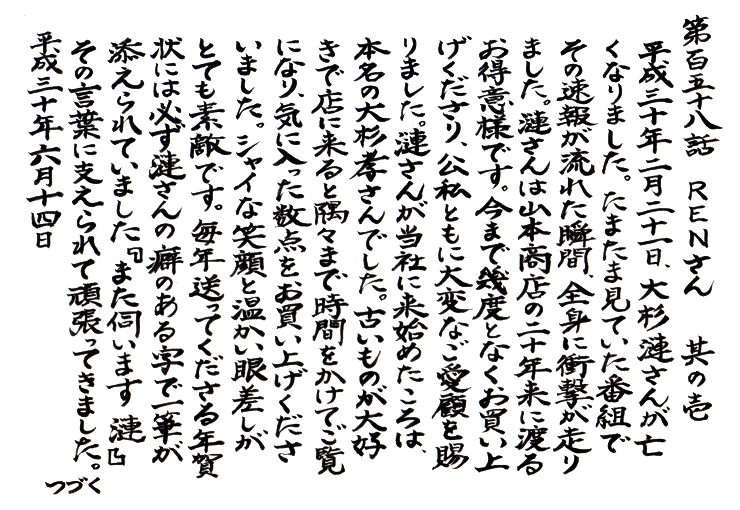 第百五十八話　RENさん　其の壱
平成三十年二月二十一日、大杉漣さんが亡
くなりました。たまたま見ていた番組で
その速報が流れた瞬間、全身に衝撃が走り
ました。漣さんは山本商店の二十年来に渡る
お得意様です。今まで幾度となくお買い上
げくださり、公私ともに大変なご愛顧を賜
りました。漣さんが当社に来始めたころは、
本名の大杉孝さんでした。古いものが大好
きで店に来ると隅々まで時間をかけてご覧
になり、気に入った数点をお買い上げくださ
いました。シャイな笑顔と温かい眼差しが
とても素敵です。毎年送ってくださる年賀
状には必ず漣さんの癖のある字で一筆が
添えられていました『また伺います 漣』
その言葉に支えられて頑張ってきました。
つづく
平成三十年六月十四日